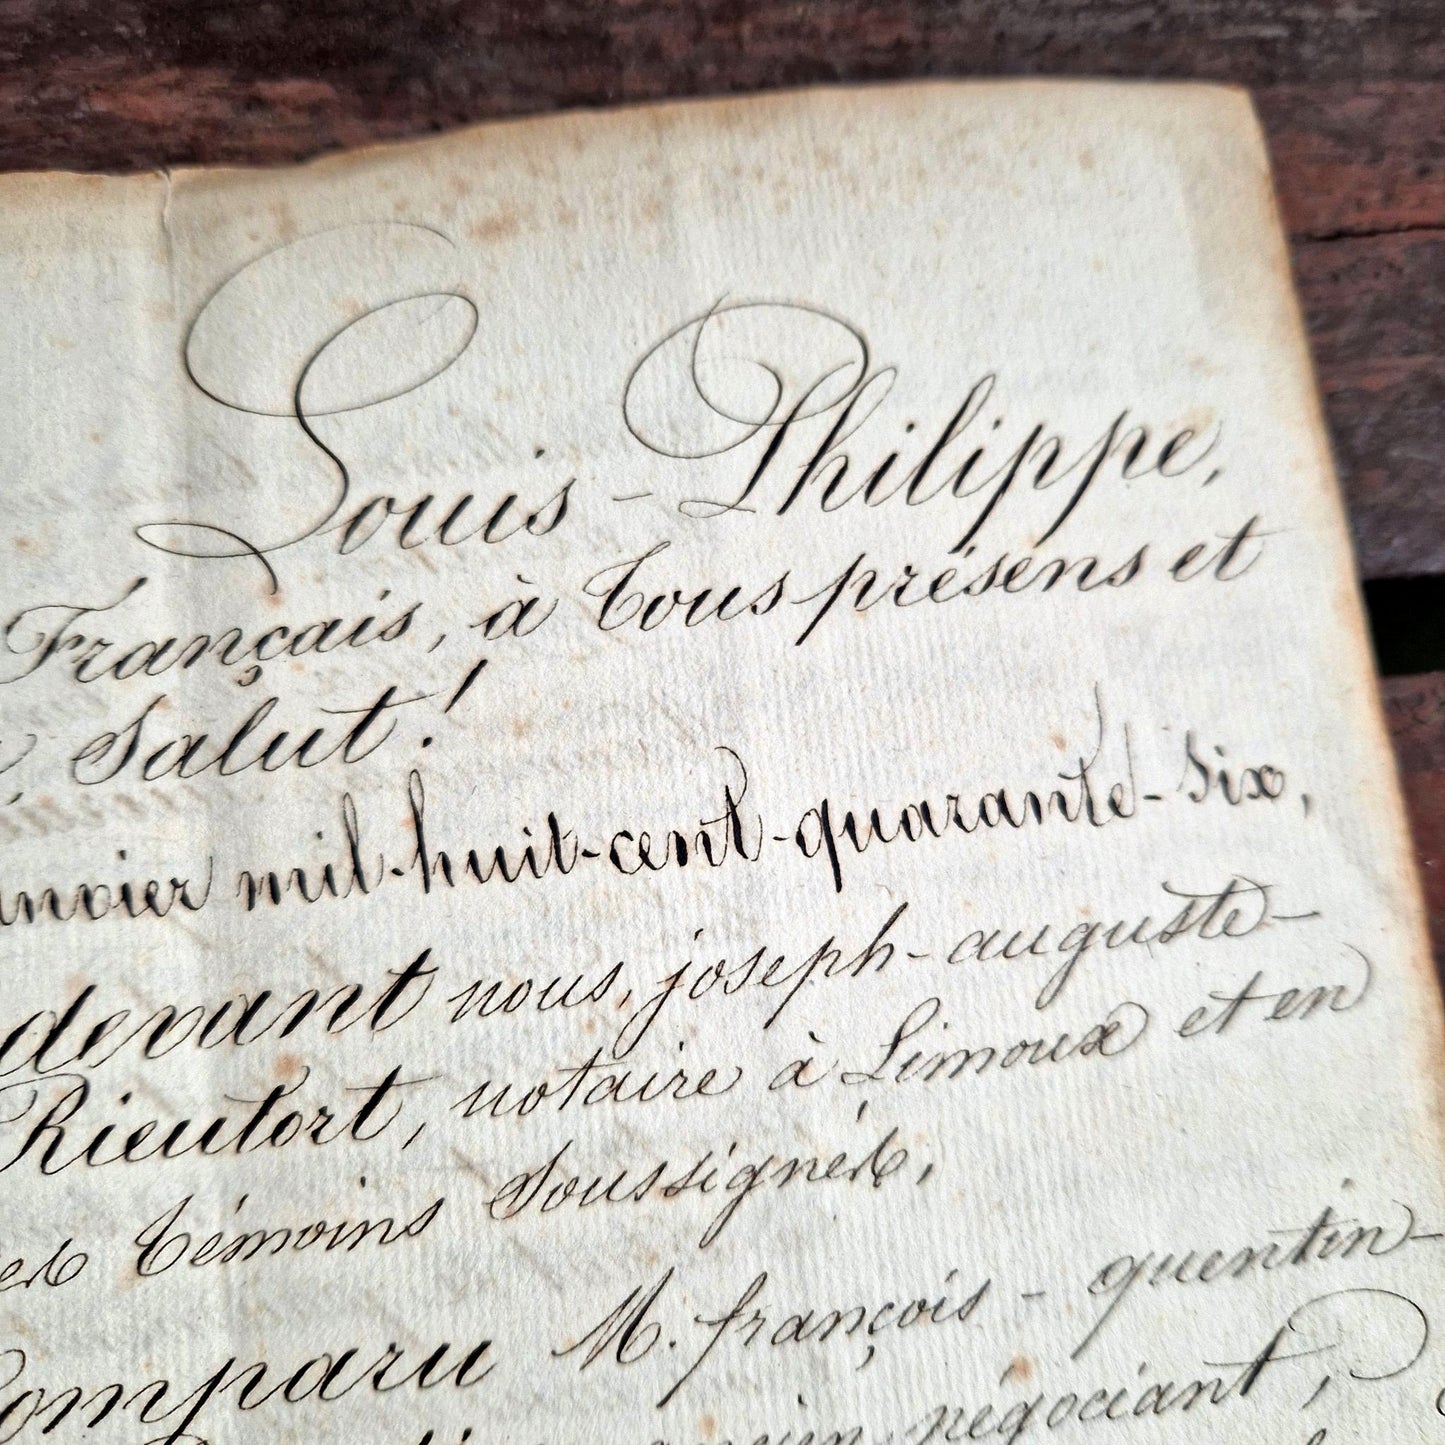 Louis-Philippe,
Français, à tous présens et
Salut!
anvier mil-huit-cent-quarante-six,
devant nous, joseph-auguste-
Rieutort, notaire à Limoux et en
témoins soussignés,
Comparu M. françois-quentin-
ancien négociant,